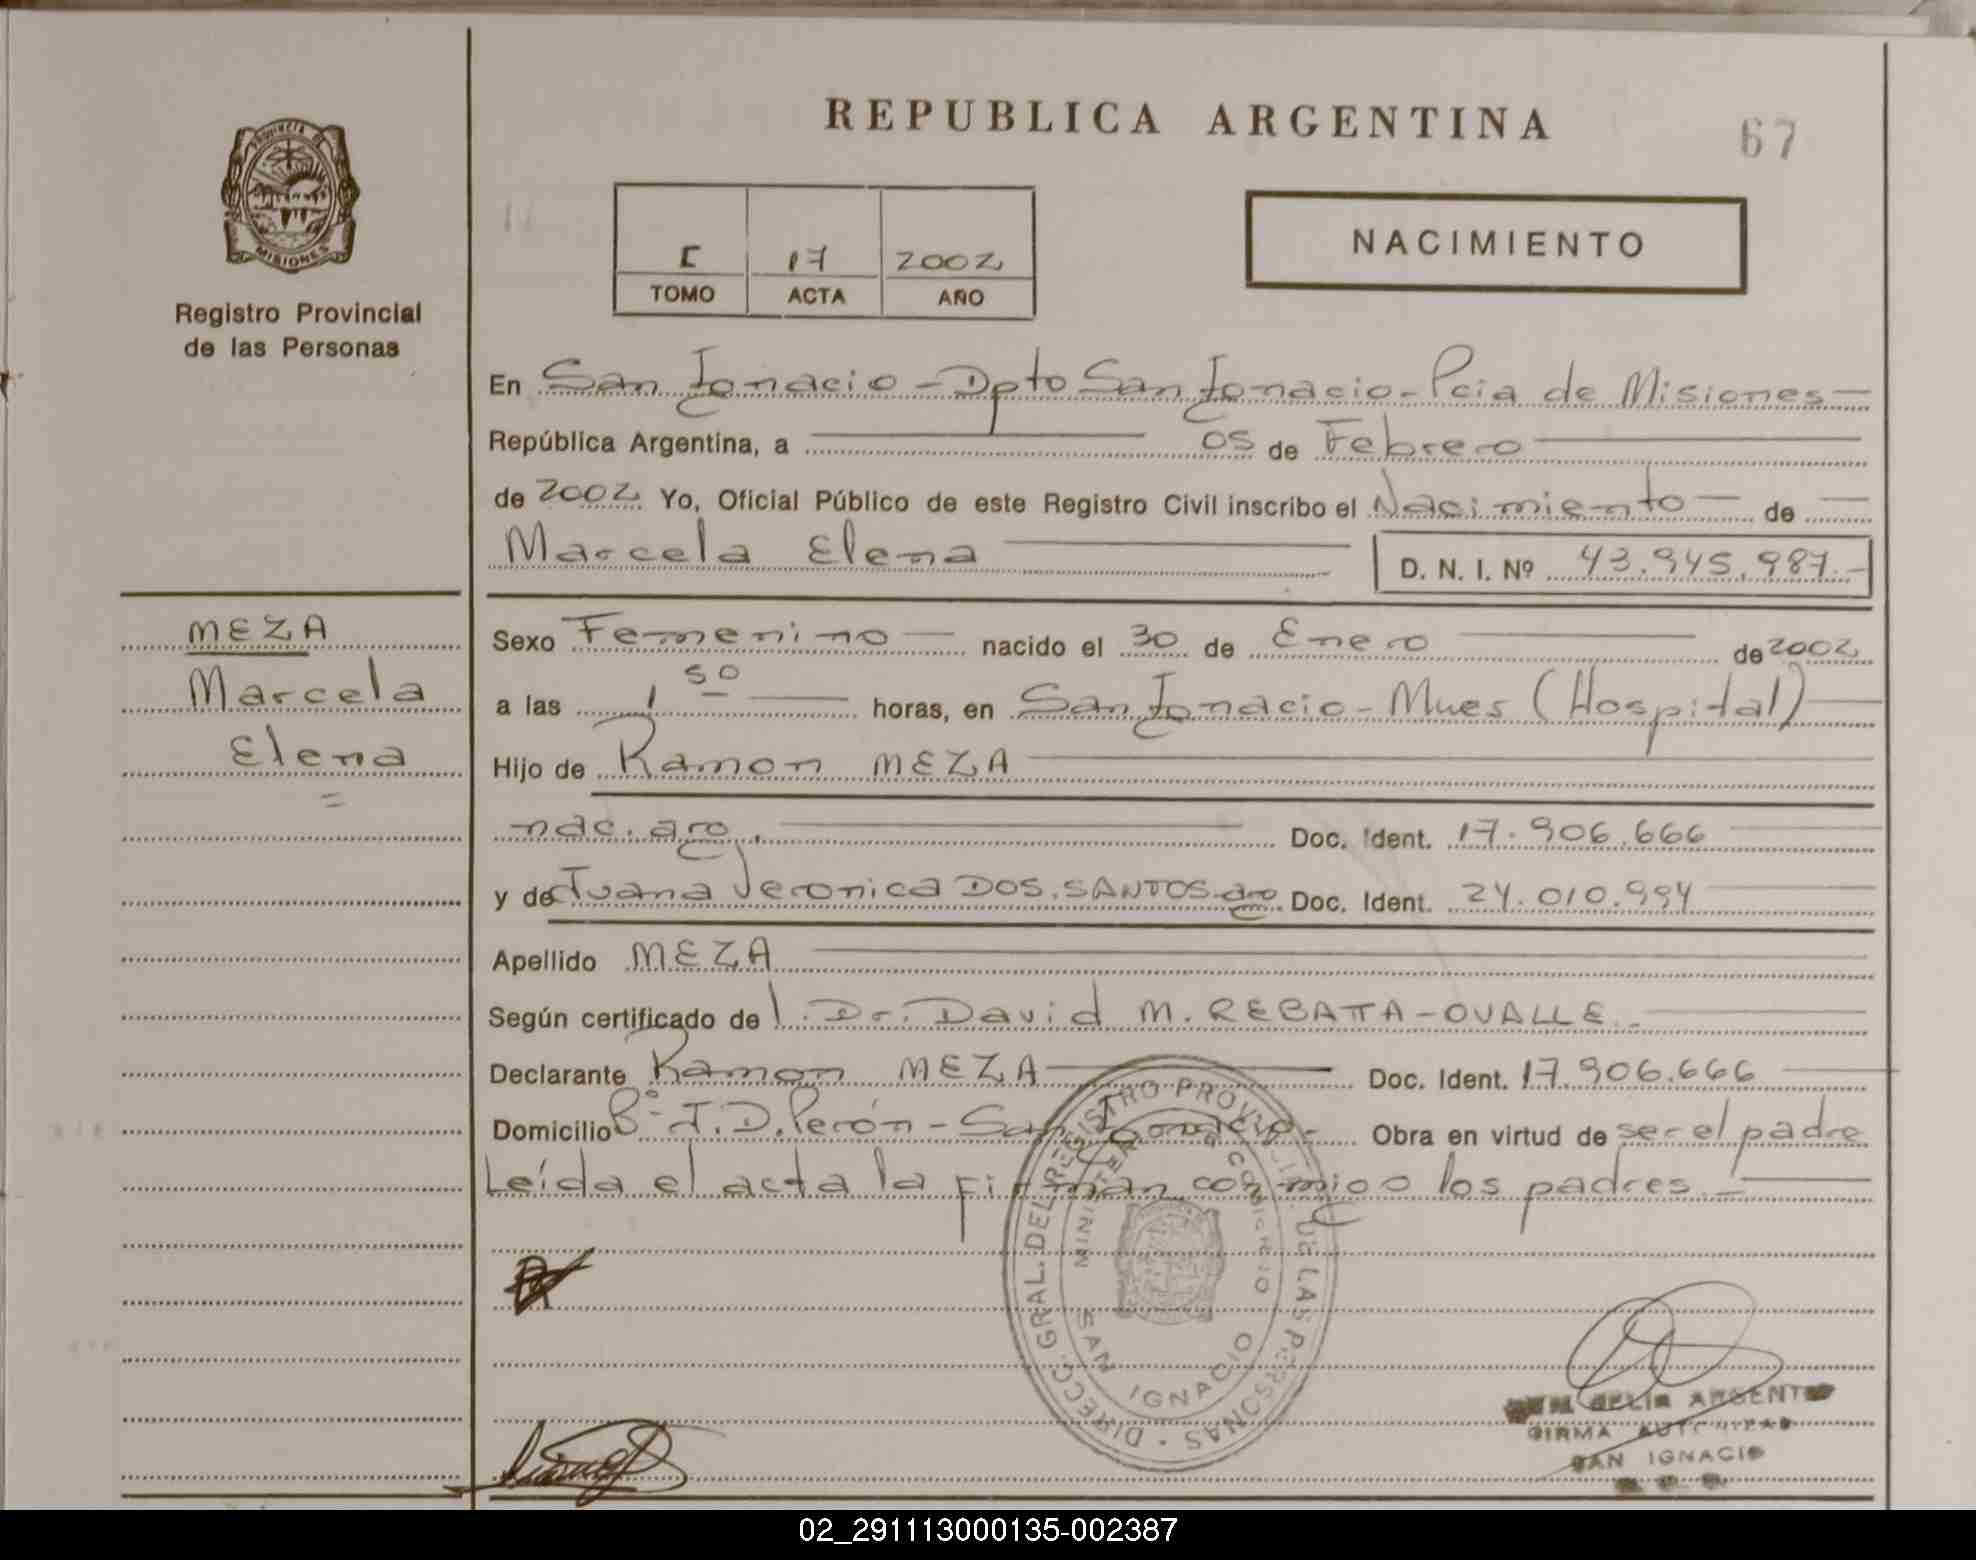 REPUBLICA ARGENTINA
67
PROVINCIA DE
MISIONES
Registro Provincial
de las Personas
I 17 2002
TOMO ACTA AÑO
NACIMIENTO
En San Ignacio - Dpto San Ignacio - Pcia de Misiones -
República Argentina, a 05 de Febrero
de 2002 Yo, Oficial Público de este Registro Civil inscribo el Nacimiento - de -
Marcela Elena D. N. I. Nº 43.945.987.-
MEZA
Marcela
Elena
Sexo Femenino - nacido el 30 de Enero de 2002
a las 1 50 horas, en San Ignacio - Mnes (Hospital)
Hijo de Ramon MEZA
nac. arg. Doc. Ident. 17.906.666
y de Juana Veronica DOS SANTOS arg Doc. Ident. 24.010.994
Apellido MEZA
Según certificado de l. Dr. David M. REBATTA - OVALLE.-
Declarante Ramon MEZA Doc. Ident. 17.906.666
Domicilio Bº J. D. Perón - San Ignacio - Obra en virtud de ser el padre
Leída el acta la firman conmigo los padres.-
DIRECC. GRAL. DEL REGISTRO PROVINCIAL DE LAS PERSONAS
SAN IGNACIO
ARGENTINO
FIRMA AUTORIZADA
SAN IGNACIO
02_291113000135-002387